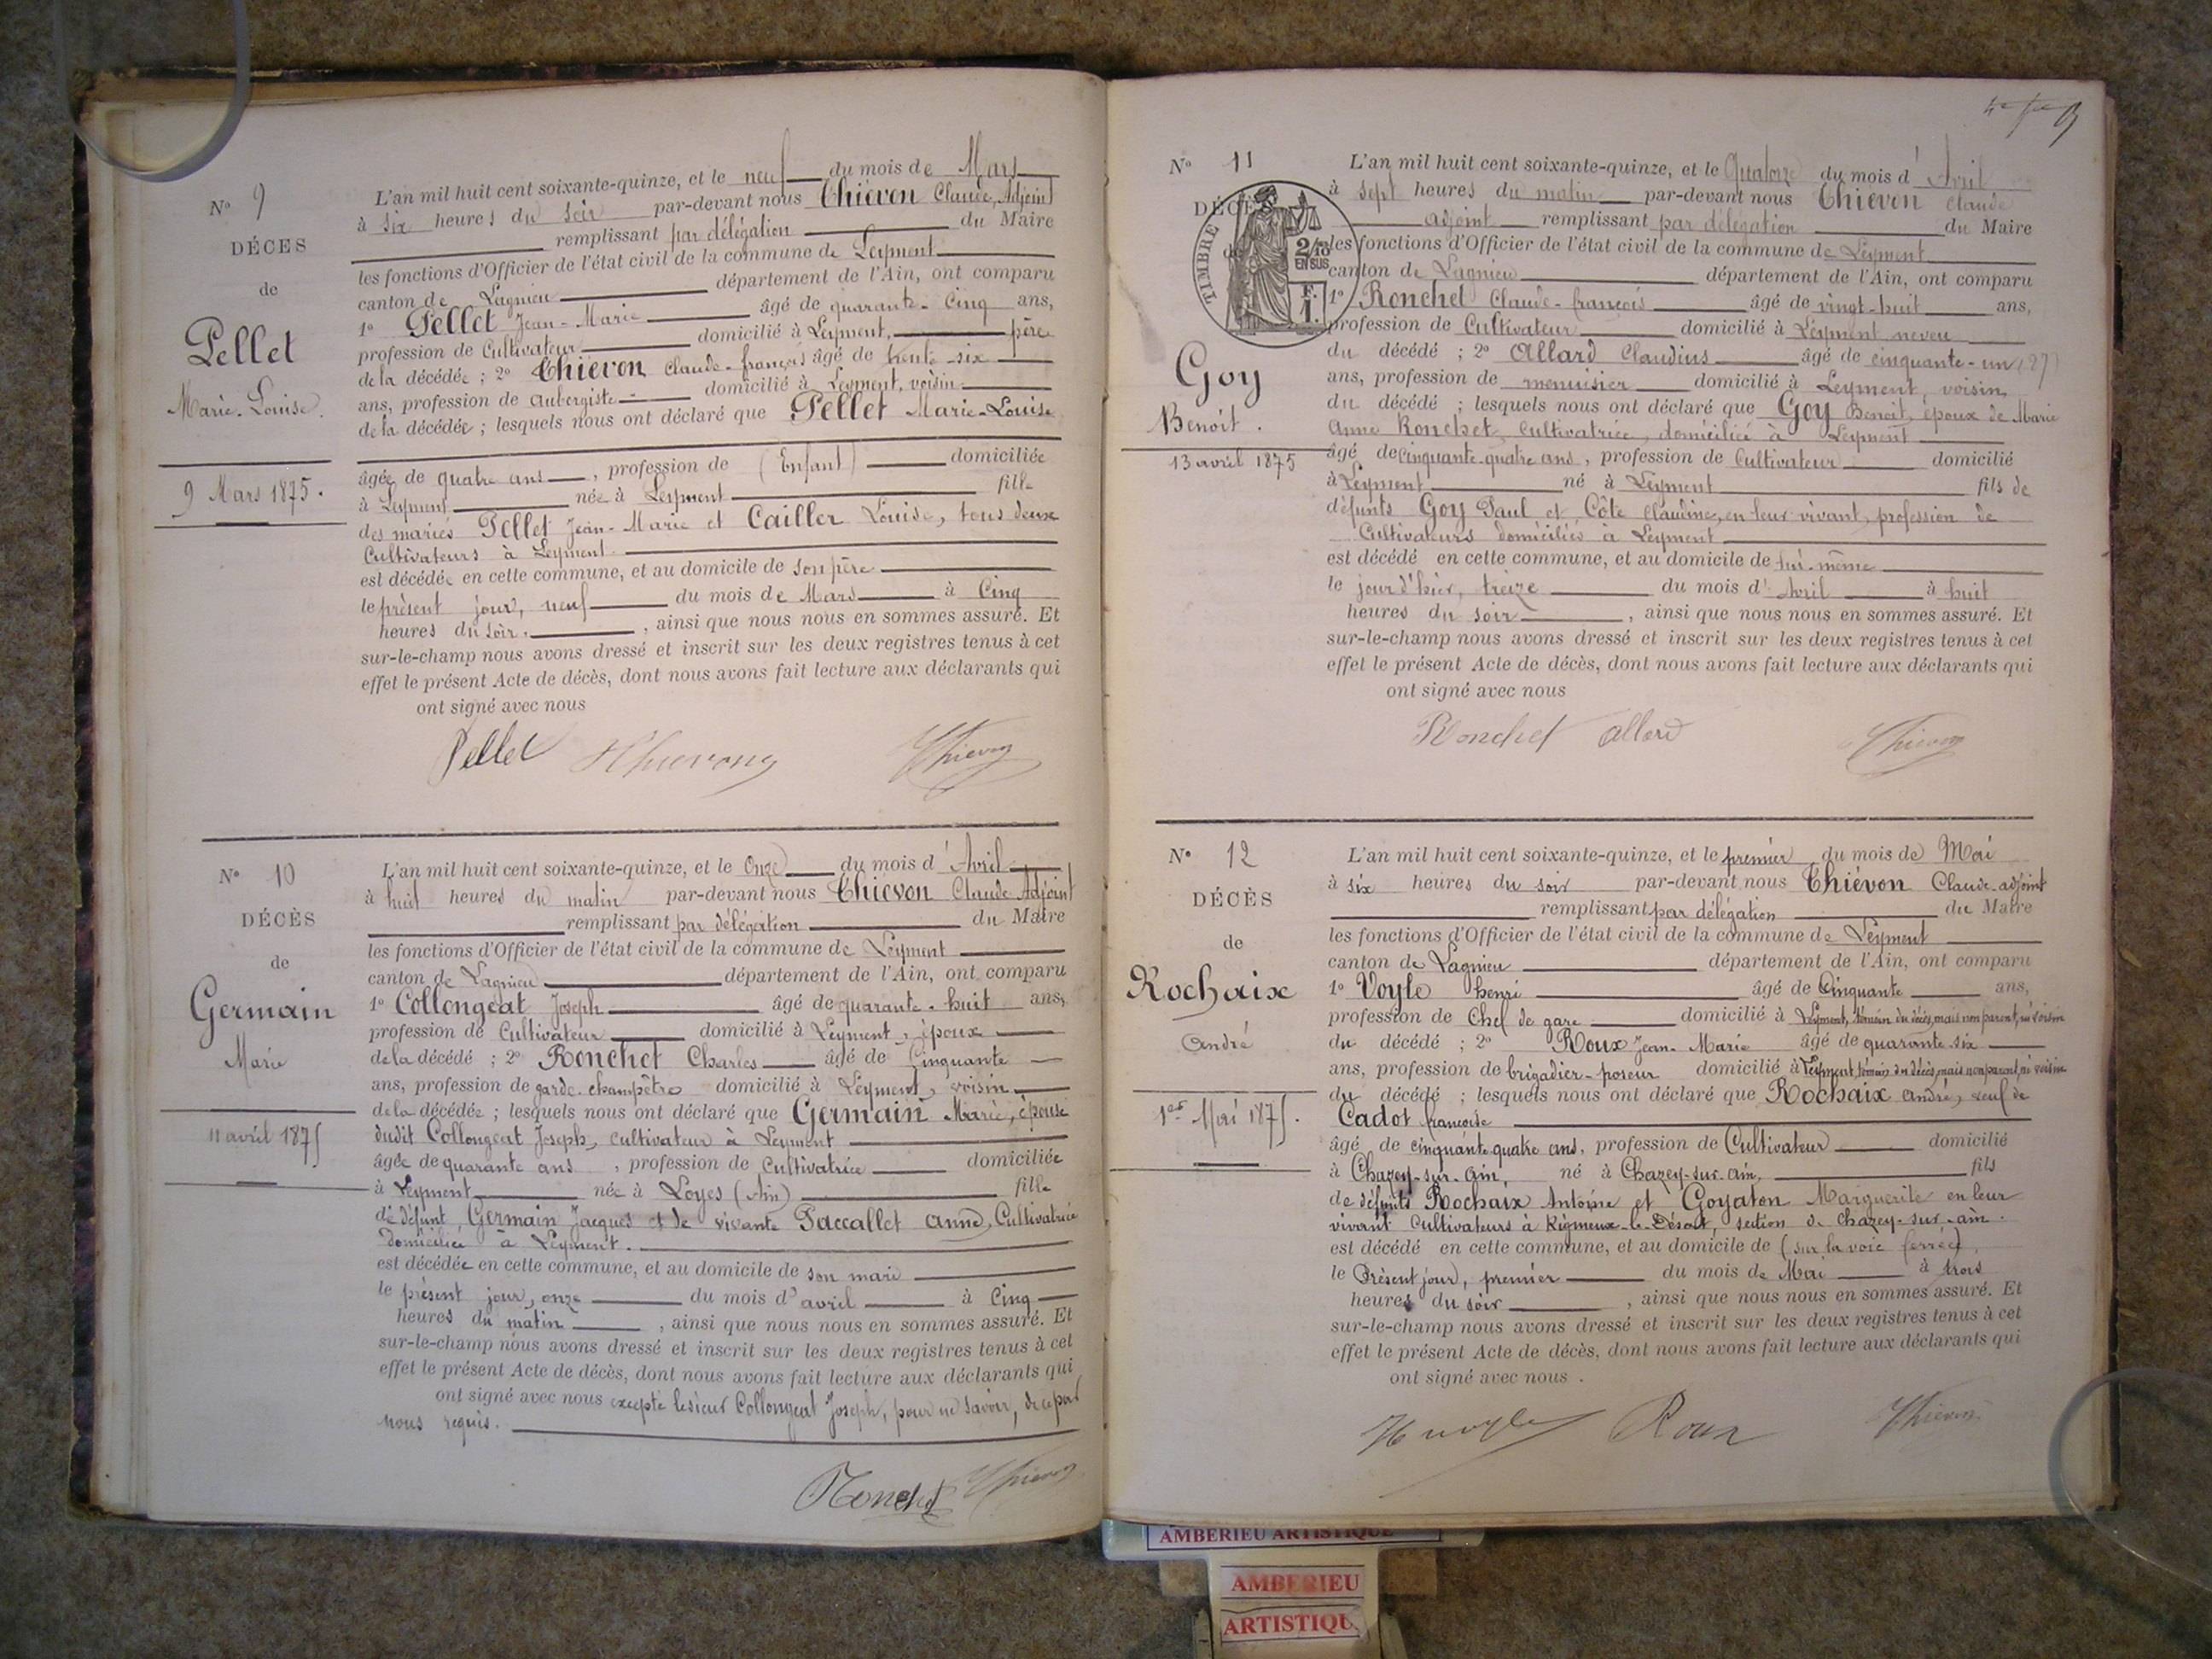 N° 9
DÉCES
de
Pellet
Marie-Louise.
9 Mars 1875.
L'an mil huit cent soixante-quinze, et le neuf du mois de Mars
à six heures du soir par-devant nous Thiévon Claude, Adjoint
remplissant par délégation du Maire
les fonctions d'Officier de l'état civil de la commune de Leyment
canton de Lagnieu département de l'Ain, ont comparu
1° Pellet Jean-Marie âgé de quarante-cinq ans,
profession de Cultivateur domicilié à Leyment, père
de la décédée ; 2° Thiévon Claude-françois âgé de trente-six
ans, profession de Aubergiste domicilié à Leyment, voisin
de la décédée ; lesquels nous ont déclaré que Pellet Marie-Louise
âgée de quatre ans, profession de (Enfant) domiciliée
à Leyment née à Leyment fille
des mariés Pellet Jean-Marie et Cailler Louise, tous deux
Cultivateurs à Leyment.
est décédée en cette commune, et au domicile de son père
le présent jour, neuf du mois de Mars à Cinq
heures du soir, ainsi que nous nous en sommes assuré. Et
sur-le-champ nous avons dressé et inscrit sur les deux registres tenus à cet
effet le présent Acte de décès, dont nous avons fait lecture aux déclarants qui
ont signé avec nous
Pellet Thievong Thievon
N° 10
DÉCÈS
de
Germain
Marie
11 avril 1875
L'an mil huit cent soixante-quinze, et le Onze du mois d'Avril
à huit heures du matin par-devant nous Thiévon Claude-Adjoint
remplissant par délégation du Maire
les fonctions d'Officier de l'état civil de la commune de Leyment
canton de Lagnieu département de l'Ain, ont comparu
1° Collongeat Joseph âgé de quarante-huit ans,
profession de Cultivateur domicilié à Leyment, époux
de la décédé ; 2° Ronchet Charles âgé de Cinquante
ans, profession de garde-champêtre domicilié à Leyment, voisin
de la décédée ; lesquels nous ont déclaré que Germain Marie, épouse
dudit Collongeat Joseph, cultivateur à Leyment
âgée de quarante ans, profession de Cultivatrice domiciliée
à Leyment née à Loyes (Ain) fille
de défunt Germain Jacques et de vivante Paccallet Anne, Cultivatrice
domiciliée à Leyment.
est décédée en cette commune, et au domicile de son mari
le présent jour, onze du mois d'avril à Cinq
heures du matin, ainsi que nous nous en sommes assuré. Et
sur-le-champ nous avons dressé et inscrit sur les deux registres tenus à cet
effet le présent Acte de décès, dont nous avons fait lecture aux déclarants qui
ont signé avec nous excepté le sieur Collongeat Joseph, pour ne savoir, de ce par
nous requis.
Ronchet Thievon
N° 11
DÉCÈS
de
TIMBRE
2/10
EN SUS
F.
1.
Goy
Benoit.
13 avril 1875
L'an mil huit cent soixante-quinze, et le Quatorze du mois d'Avril
à sept heures du matin par-devant nous Thiévon Claude
adjoint remplissant par délégation du Maire
les fonctions d'Officier de l'état civil de la commune de Leyment
canton de Lagnieu département de l'Ain, ont comparu
1° Ronchet Claude-françois âgé de vingt-huit ans,
profession de Cultivateur domicilié à Leyment neveu
du décédé ; 2° Allard Claudius âgé de cinquante-un
ans, profession de menuisier domicilié à Leyment, voisin
du décédé ; lesquels nous ont déclaré que Goy Benoit, époux de Marie
Anne Ronchet, Cultivatrice, domiciliée à Leyment
âgé de cinquante-quatre ans, profession de Cultivateur domicilié
à Leyment né à Leyment fils de
défunts Goy Paul et Côte Claudine, en leur vivant, profession de
Cultivateurs domiciliés à Leyment
est décédé en cette commune, et au domicile de lui-même
le jour d'hier, treize du mois d'Avril à huit
heures du soir, ainsi que nous nous en sommes assuré. Et
sur-le-champ nous avons dressé et inscrit sur les deux registres tenus à cet
effet le présent Acte de décès, dont nous avons fait lecture aux déclarants qui
ont signé avec nous
Ronchet Allard Thievon
N° 12
DÉCÈS
de
Rochaix
André
1er Mai 1875.
L'an mil huit cent soixante-quinze, et le premier du mois de Mai
à six heures du soir par-devant nous Thiévon Claude-adjoint
remplissant par délégation du Maire
les fonctions d'Officier de l'état civil de la commune de Leyment
canton de Lagnieu département de l'Ain, ont comparu
1° Voyle henri âgé de Cinquante ans,
profession de Chef de gare domicilié à Leyment, témoin du décès, mais non parent, ni voisin
du décédé ; 2° Roux Jean-Marie âgé de quarante-six
ans, profession de brigadier-poseur domicilié à Leyment, témoin du décès, mais non parent, ni voisin
du décédé ; lesquels nous ont déclaré que Rochaix André, veuf de
Cadot françoise
âgé de cinquante-quatre ans, profession de Cultivateur domicilié
à Chazey-sur-Ain, né à Chazey-sur-Ain, fils
de défunts Rochaix Antoine et Goyaton Marguerite en leur
vivant Cultivateurs à Rigneux-le-Désert, section de Chazey-sur-ain.
est décédé en cette commune, et au domicile de (sur la voie ferrée),
le Présent jour, premier du mois de Mai à trois
heures du soir, ainsi que nous nous en sommes assuré. Et
sur-le-champ nous avons dressé et inscrit sur les deux registres tenus à cet
effet le présent Acte de décès, dont nous avons fait lecture aux déclarants qui
ont signé avec nous.
H voyle Roux Thievon
AMBERIEU ARTISTIQUE
AMBERIEU
ARTISTIQU